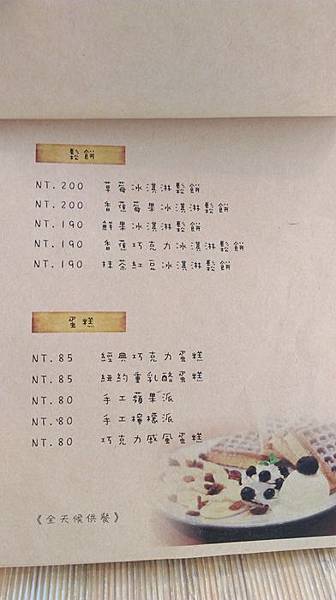 鬆餅
NT.200 草莓冰淇淋鬆餅
NT.200 香蕉莓果冰淇淋鬆餅
NT.190 鮮果冰淇淋鬆餅
NT.190 香蕉巧克力冰淇淋鬆餅
NT.190 抹茶紅豆冰淇淋鬆餅
蛋糕
NT.85 經典巧克力蛋糕
NT.85 紐約重乳酪蛋糕
NT.80 手工蘋果派
NT.80 手工檸檬派
NT.80 巧克力戚風蛋糕
《全天候供餐》